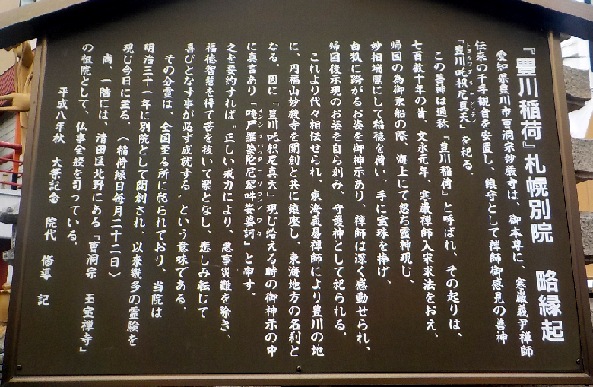 『豊川稲荷』札幌別院　略縁起
愛知県豊川市曹洞宗妙厳寺は、御本尊に、寒巌義尹禅師
伝来の千手観音を安置し、鎮守として禅師御感見の善神
「豊川吒枳尼真天」を祀る。
この善神は通称、「豊川稲荷」と呼ばれ、その起りは、
七百数十年の昔、文永元年、寒巌禅師入宋求法をおえ、
帰国の為御乗船の際、海上にて忽ち霊神現じ、
妙相端麗にして稲穂を荷い、手に宝珠を捧げ、
白狐に跨がるお姿を御神示あり、禅師は深く感動せられ、
帰国後示現のお姿を自ら刻み、守護神として祀られる。
これより代々相伝せられ、東海義易禅師により豊川の地
に、円福山妙厳寺を開創と共に鎮座し、東海地方の名刹と
なる。因に「豊川吒枳尼真天」現じ給える時の御神示の中
に真言あり「唵尸羅婆陀尼黎吽娑婆訶」と申す。
之を要約すれば"正しい戒力により、悪事災難を除き、
福徳智慧を得て苦を抜いて楽となし、悲しみ転じて
喜びとなす事が必ず成就する"という意味である。
その分霊は、全国五ヶ所に限られており、当院は
明治三十一年に別院として開創され、以来幾多の霊験を
現じ今日に至る。（稲荷縁日毎月二十二日）
尚、一階には、清田区北野にある「曹洞宗　玉宝禅寺」
の祖院として、仏事全般を司っている。
平成八年秋　大祭記念　院代　修導　記